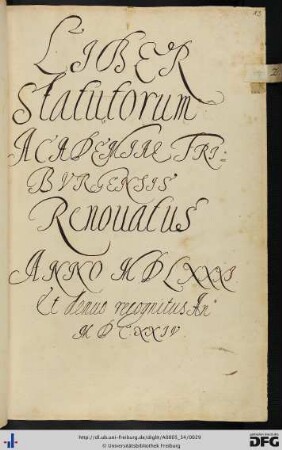 LIBER
Statutorum
ACADEMIAE FRI=
BVRGENSIS
Renouatus
ANNO MDLXXXI
Et denuo recognitus An°
MDCXXIV
http://dl.ub.uni-freiburg.de/diglit/A0005_14/0029
© Universitätsbibliothek Freiburg
DFG